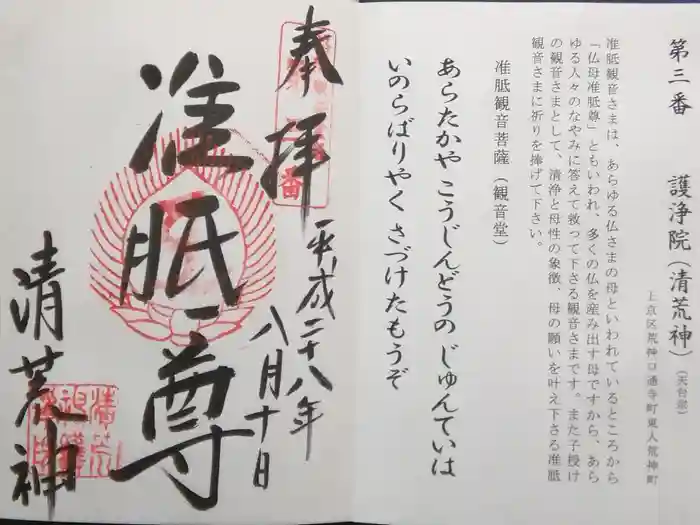 第三番 護浄院（清荒神）（天台宗）
上京区荒神口通寺町東入荒神町
准胝観音さまは、あらゆる仏さまの母といわれているところから
「仏母准胝尊」ともいわれ、多くの仏を産み出す母ですから、あら
ゆる人々のなやみに答えて救って下さる観音さまです。また子授け
の観音さまとして、清浄と母性の象徴、母の願いを叶え下さる准胝
観音さまに祈りを捧げて下さい。
准胝観音菩薩（観音堂）
あらたかや こうじんどうの じゅんていは
いのらばりやく さづけたもうぞ
奉拝
平成二十八年
八月十日
准胝尊
清荒神